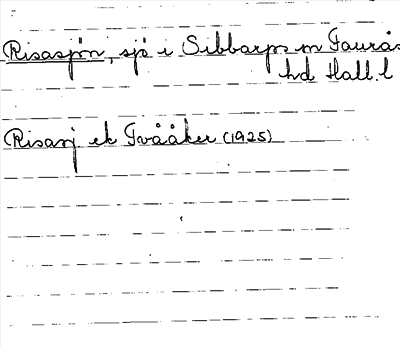 Risasjön, sjö i Sibbarps sn Faurås
hd Hall. l
Risasj ek Tvååker (1925)